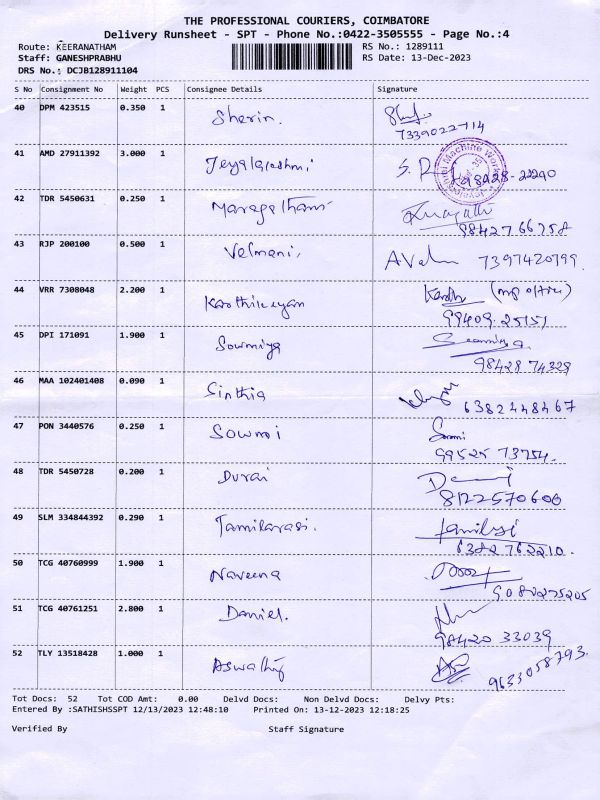 THE PROFESSIONAL COURIERS, COIMBATORE
Delivery Runsheet - SPT - Phone No.:0422-3505555 - Page No.:4
Route: KEERANATHAM RS No.: 1289111
Staff: GANESHPRABHU RS Date: 13-Dec-2023
DRS No.: DCJB128911104
S No Consignment No Weight PCS Consignee Details Signature
40 DPM 423515 0.350 1 Sherin.
7339022714
41 AMD 27911392 3.000 1 Jeyalakshmi S. R
98428-22290
42 TDR 5450631 0.250 1 Maragatham
98427 66758
43 RJP 200100 0.500 1 Velmani, A Velu 7397420799.
44 VRR 7308048 2.200 1 Karthikeyan
99409.25151
45 DPI 171091 1.900 1 Sowmiya
98428 74329
46 MAA 102401408 0.090 1 Sinthia
6382448467
47 PON 3440576 0.250 1 Sowmi
99525 73754.
48 TDR 5450728 0.200 1 Durai
8122570600
49 SLM 334844392 0.290 1 Tamilarasi.
6382 762210.
50 TCG 40760999 1.900 1 Naveena
9080275205
51 TCG 40761251 2.800 1 Daniel.
98420 33039
52 TLY 13518428 1.000 1 Aswathy
9633058793.
Tot Docs: 52 Tot COD Amt: 0.00 Delvd Docs: Non Delvd Docs: Delvy Pts:
Entered By :SATHISHSSPT 12/13/2023 12:48:10 Printed On: 13-12-2023 12:18:25
Verified By Staff Signature